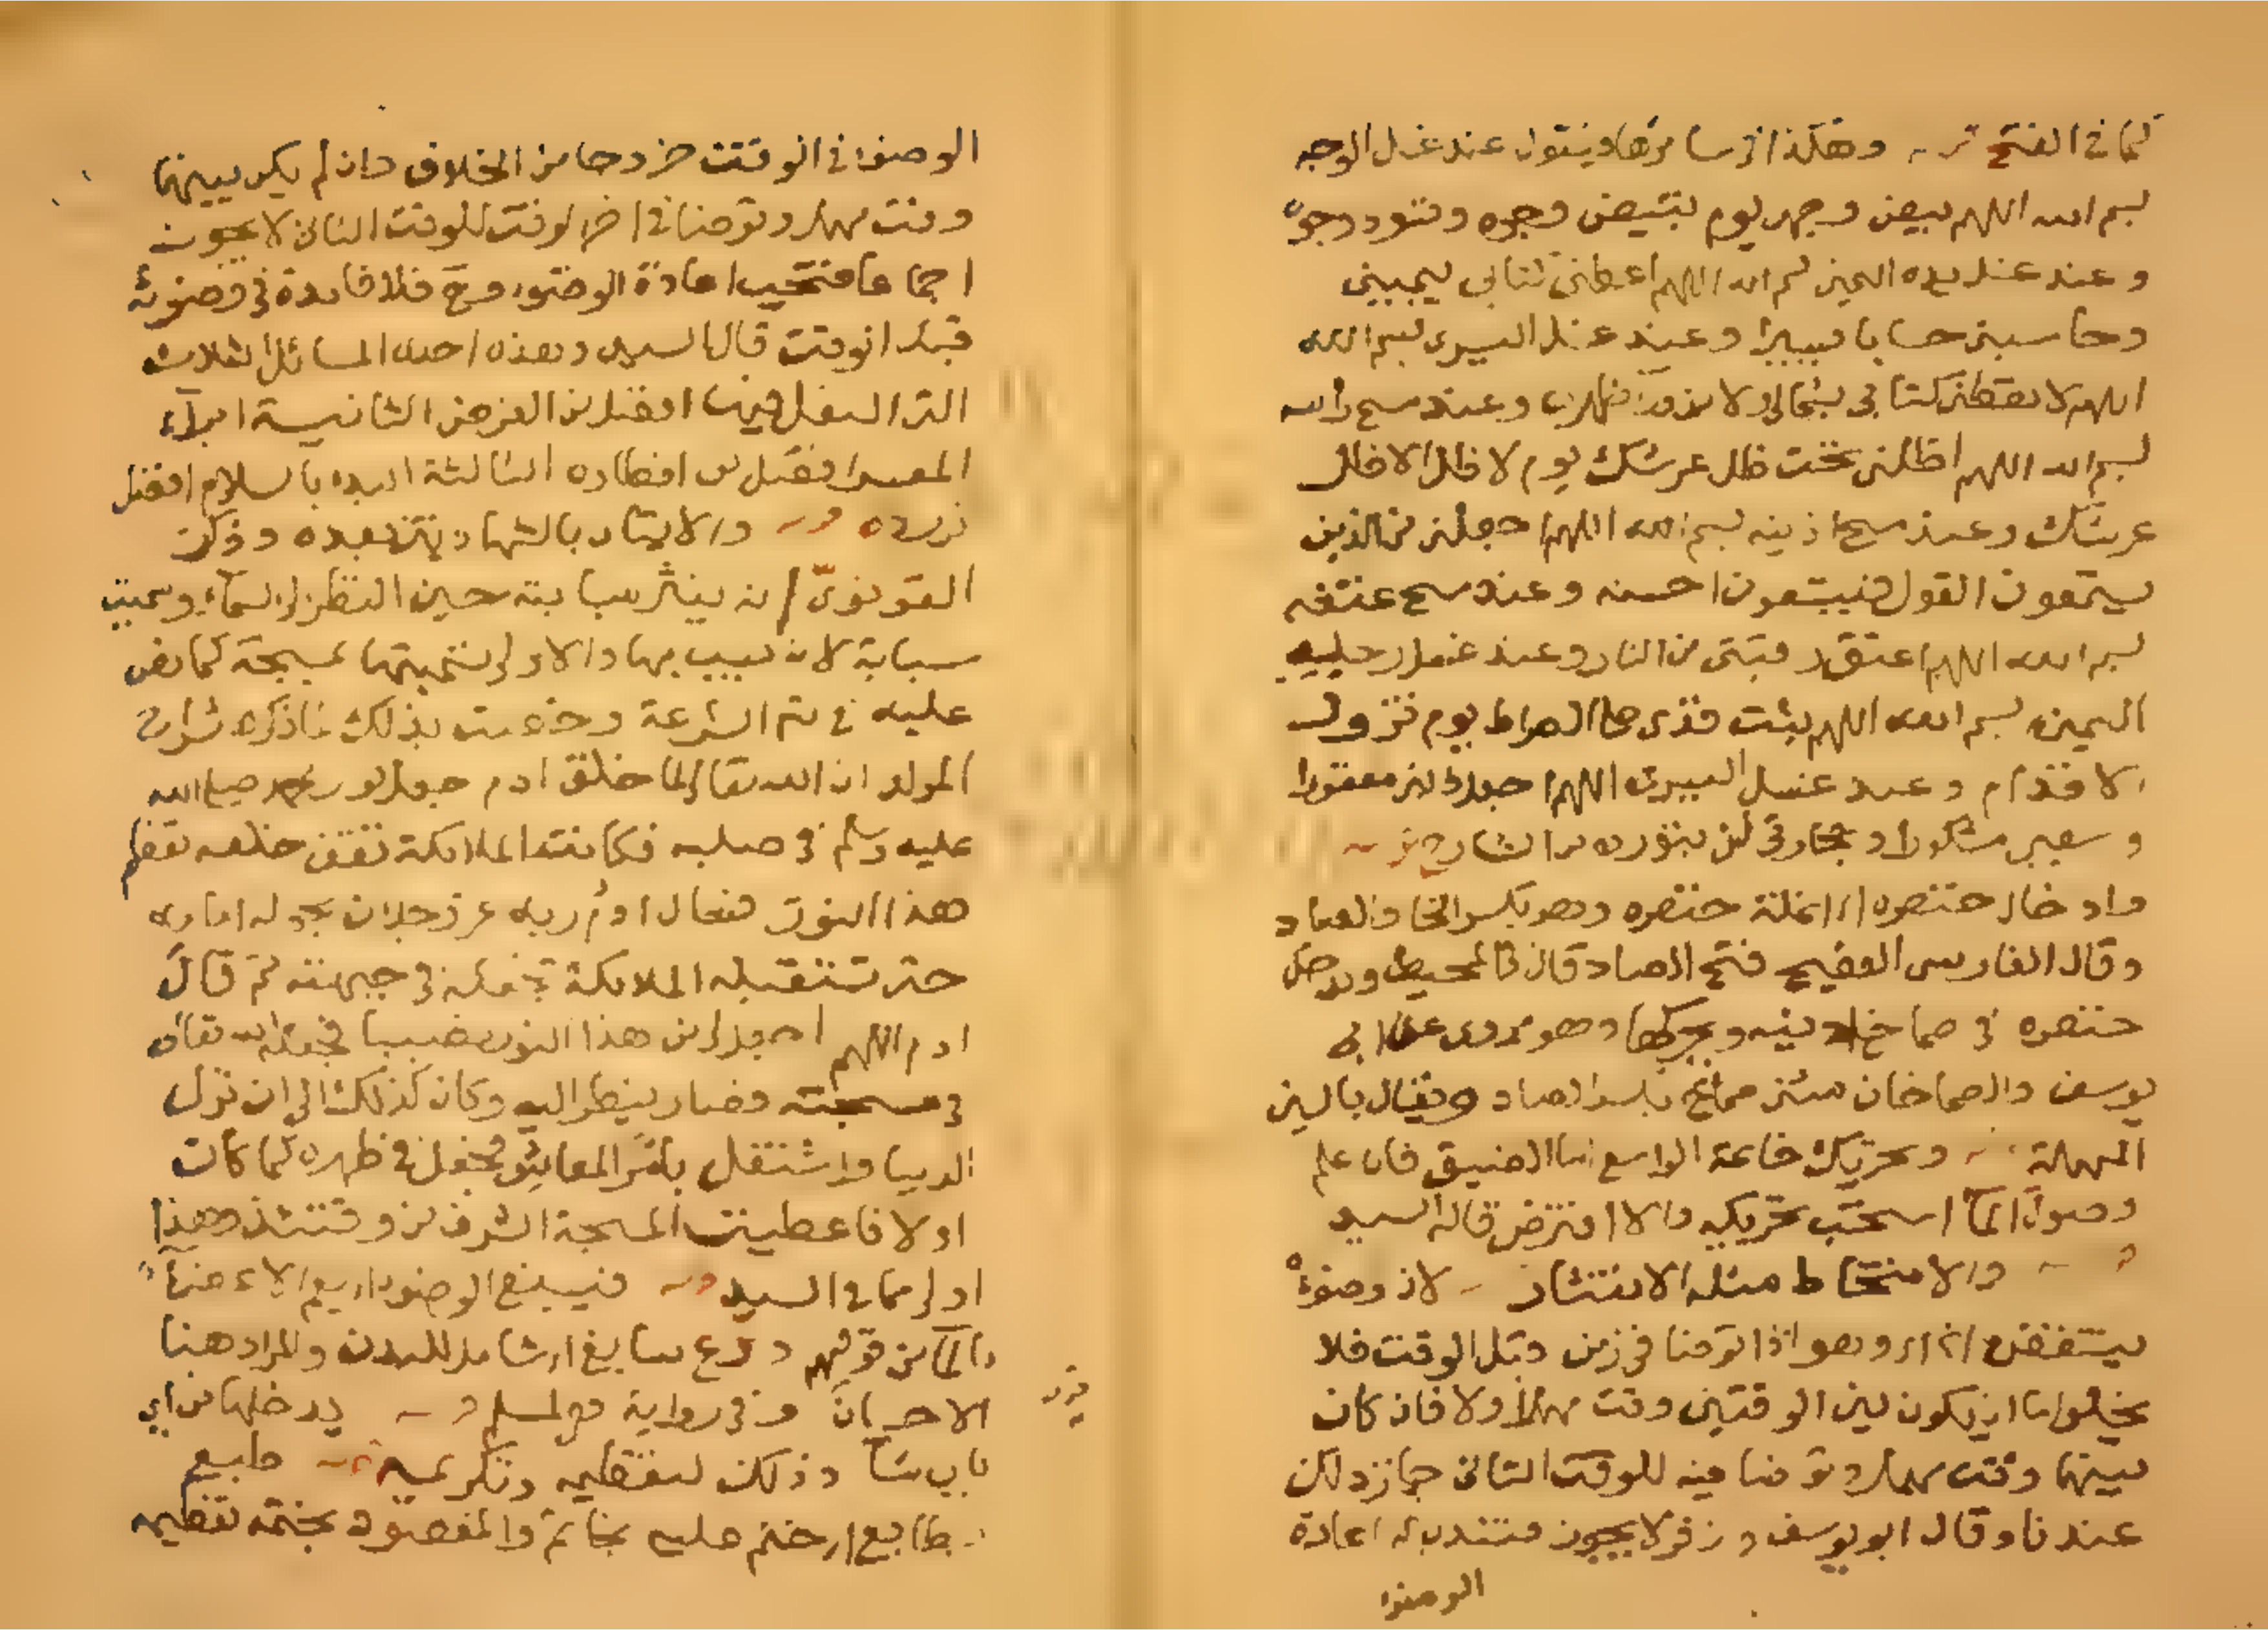 كما في الفتح وهكذا في سائرها ويقول عند غسل الوجه
بسم الله اللهم بيض وجهي يوم تبيض وجوه وتسود وجوه
وعند غسل يده اليمين بسم الله اللهم اعطني كتابي بيميني
وحاسبني حسابا يسيرا وعند غسل اليسرى بسم الله
اللهم لا تعطني كتابي بشمالي ولا من ورآ ظهري وعند مسح راسه
بسم الله اللهم اظلني تحت ظل عرشك يوم لا ظل الا ظل
عرشك وعند مسح اذنيه بسم الله اللهم اجعلني من الذين
يستمعون القول فيتبعون احسنه وعند مسح عنقه
بسم الله اللهم اعتق رقبتي من النار وعند غسل رجليه
اليمين بسم الله اللهم ثبت قدمي على الصراط يوم تزول
الاقدام وعند غسل اليسرى اللهم اجعل ذنبي مغفورا
وسعيي مشكورا وتجارتي لن تبور
وادخال خنصره اي انملة خنصره وهو بكسر الخا والصاد
وقال الفارسي الفصيح فتح الصاد قال في المحيط ويدخل
خنصره في صماخ اذنيه ويحركها وهو مروى عن ابي
يوسف والصماخان مثنى صماخ بكسر الصاد ويقال بالسين
المهملة وتحريك خاتمه الواسع اما الضيق فان علم
وصول المآ استحب تحريكه والا افترض قاله السيد
والامتخاط مثله الاستنثار لان وضوءه
ينتقض اي وهو اذا توضا في زمن قبل الوقت فلا
يخلوا اما ان يكون بين الوقتين وقت مهمل اولا فان كان
بينهما وقت مهمل وتوضا فيه للوقت الثاني جاز ولكن
عندنا وقال ابو يوسف وزفر لا يجوز فتندب له اعادة
الوضوء
الوضوء في الوقت خروجا من الخلاف وان لم يكن بينهما
وقت مهمل وتوضا في اخر الوقت للوقت الثاني لا يجوز
اجماعا فتجب اعادة الوضوء وح فلا فايدة في وضوئه
قبل الوقت قال السيد وهذه احدى المسائل الثلاث
التي النفل فيها افضل من الفرض الثانية ابرآء
المعسر افضل من انظاره الثالثة البدء بالسلام افضل
من رده والاتيان بالشهادتين بعده وذكر
الغزنوى انه يشير بسبابته حين النظر الى السمآء وسميت
سبابة لانه يسب بها والاولى تسميتها بمسبحة كما نص
عليه في شم الشرعة وخصت بذلك لما ذكره شراح
المولد ان الله تعالى لما خلق ادم جعل نور محمد صلى الله
عليه وسلم في صلبه فكانت الملائكة تقف خلفه تعظم
هذا النور فسال ادم ربه عز وجل ان يحوله امامه
حتى تستقبله الملائكة فجعله في جبهته ثم قال
ادم اللهم اجعل لي من هذا النور نصيبا فجعله الله تعالى
في مسبحته وصار ينظر اليه وكان كذلك الى ان نزل
الدنيا واشتغل بامر المعاش فجعل في ظهره كما كان
اولا فاعطيت المسبحة الشرف من وقتئذ وهذا
اولى مما في السيد فيسبغ الوضوء اي يعم الاعضآء
بالمآ من قولهم درع سابغ اي شامل للبدن والمراد هنا
الاحسان وفي رواية لمسلم يدخلها من اي
باب شآ وذلك لتعظيمه وتكريمه طبع
بطابع اي ختم عليه بخاتم والمقصود بختمه تعظيمه